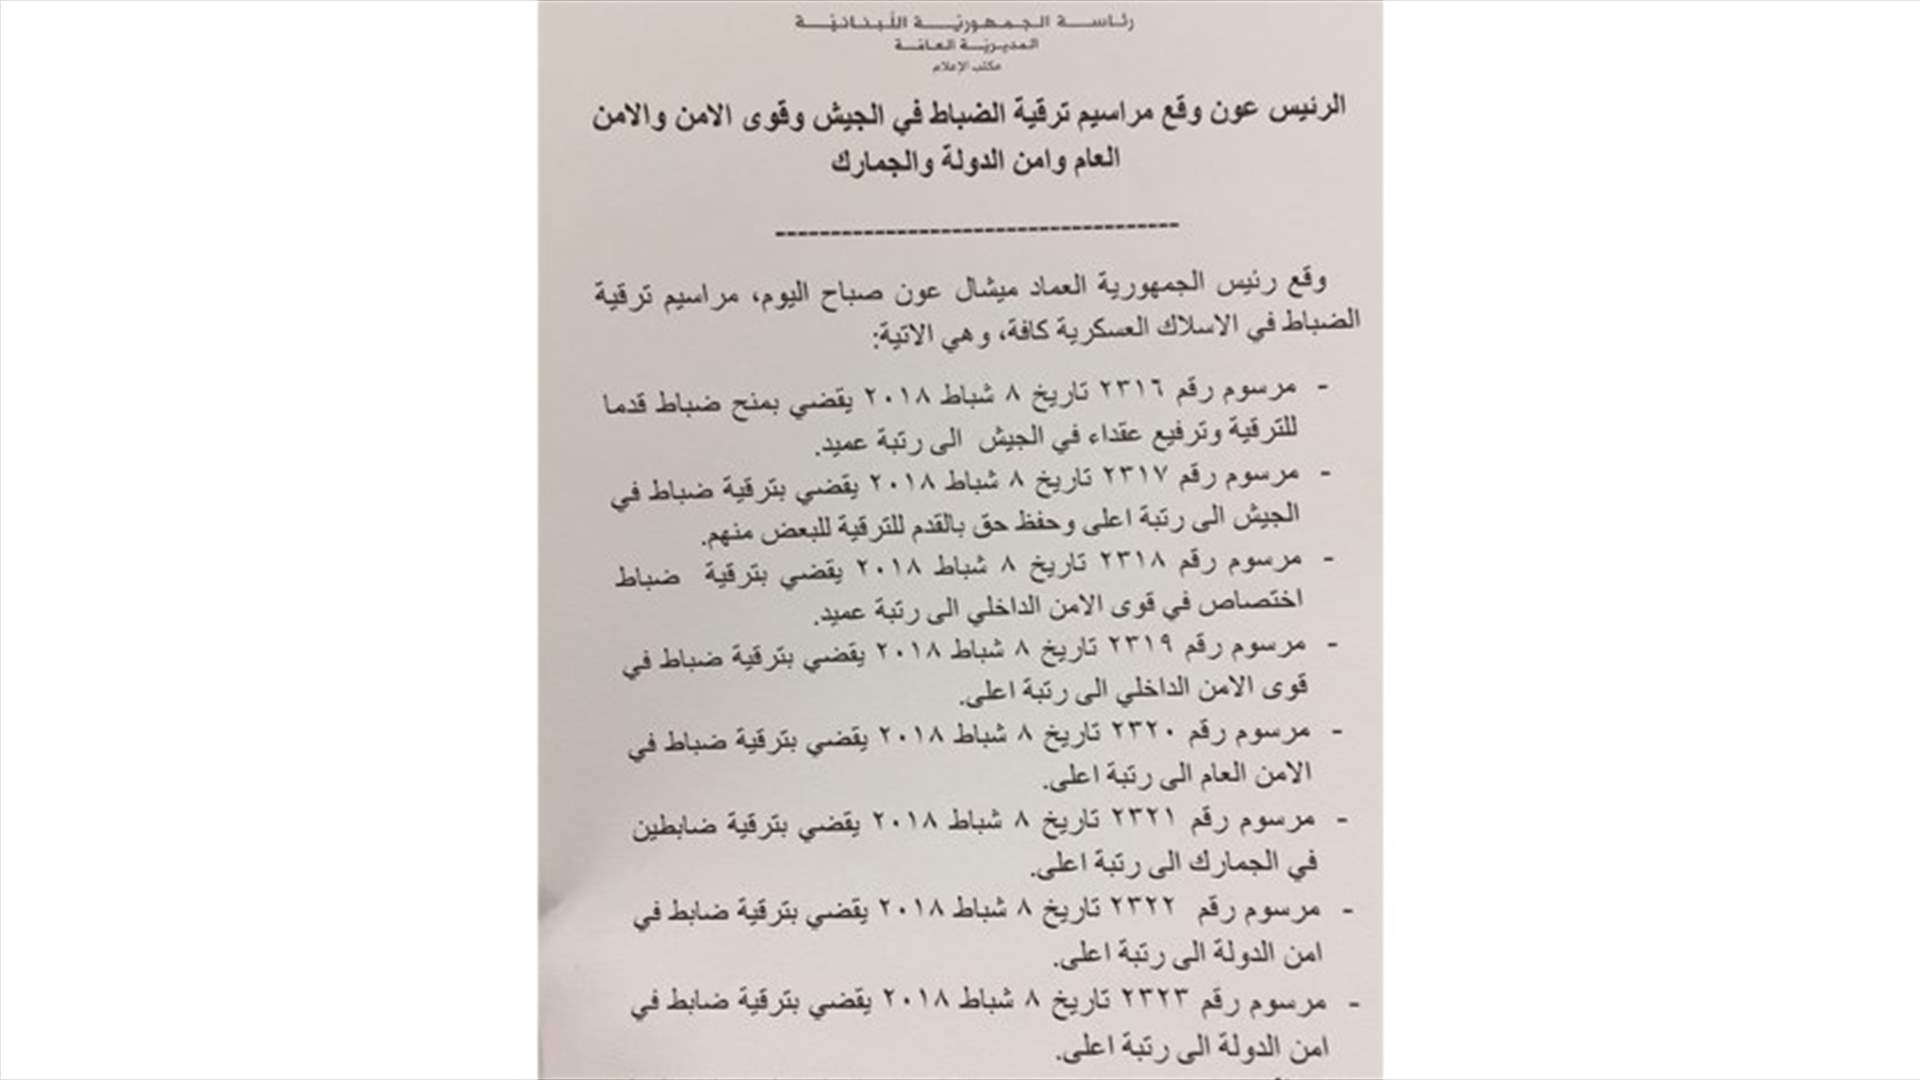 رئاسة الجمهورية اللبنانية
المديرية العامة
مكتب الإعلام
الرئيس عون وقع مراسيم ترقية الضباط في الجيش وقوى الامن والامن
العام وامن الدولة والجمارك
------------------------------------
وقع رئيس الجمهورية العماد ميشال عون صباح اليوم، مراسيم ترقية
الضباط في الاسلاك العسكرية كافة، وهي الاتية:
- مرسوم رقم ٢٣١٦ تاريخ ٨ شباط ٢٠١٨ يقضي بمنح ضباط قدما
للترقية وترفيع عقداء في الجيش الى رتبة عميد.
- مرسوم رقم ٢٣١٧ تاريخ ٨ شباط ٢٠١٨ يقضي بترقية ضباط في
الجيش الى رتبة اعلى وحفظ حق بالقدم للترقية للبعض منهم.
- مرسوم رقم ٢٣١٨ تاريخ ٨ شباط ٢٠١٨ يقضي بترقية ضباط
اختصاص في قوى الامن الداخلي الى رتبة عميد.
- مرسوم رقم ٢٣١٩ تاريخ ٨ شباط ٢٠١٨ يقضي بترقية ضباط في
قوى الامن الداخلي الى رتبة اعلى.
- مرسوم رقم ٢٣٢٠ تاريخ ٨ شباط ٢٠١٨ يقضي بترقية ضباط في
الامن العام الى رتبة اعلى.
- مرسوم رقم ٢٣٢١ تاريخ ٨ شباط ٢٠١٨ يقضي بترقية ضابطين
في الجمارك الى رتبة اعلى.
- مرسوم رقم ٢٣٢٢ تاريخ ٨ شباط ٢٠١٨ يقضي بترقية ضابط في
امن الدولة الى رتبة اعلى.
- مرسوم رقم ٢٣٢٣ تاريخ ٨ شباط ٢٠١٨ يقضي بترقية ضابط في
امن الدولة الى رتبة اعلى.